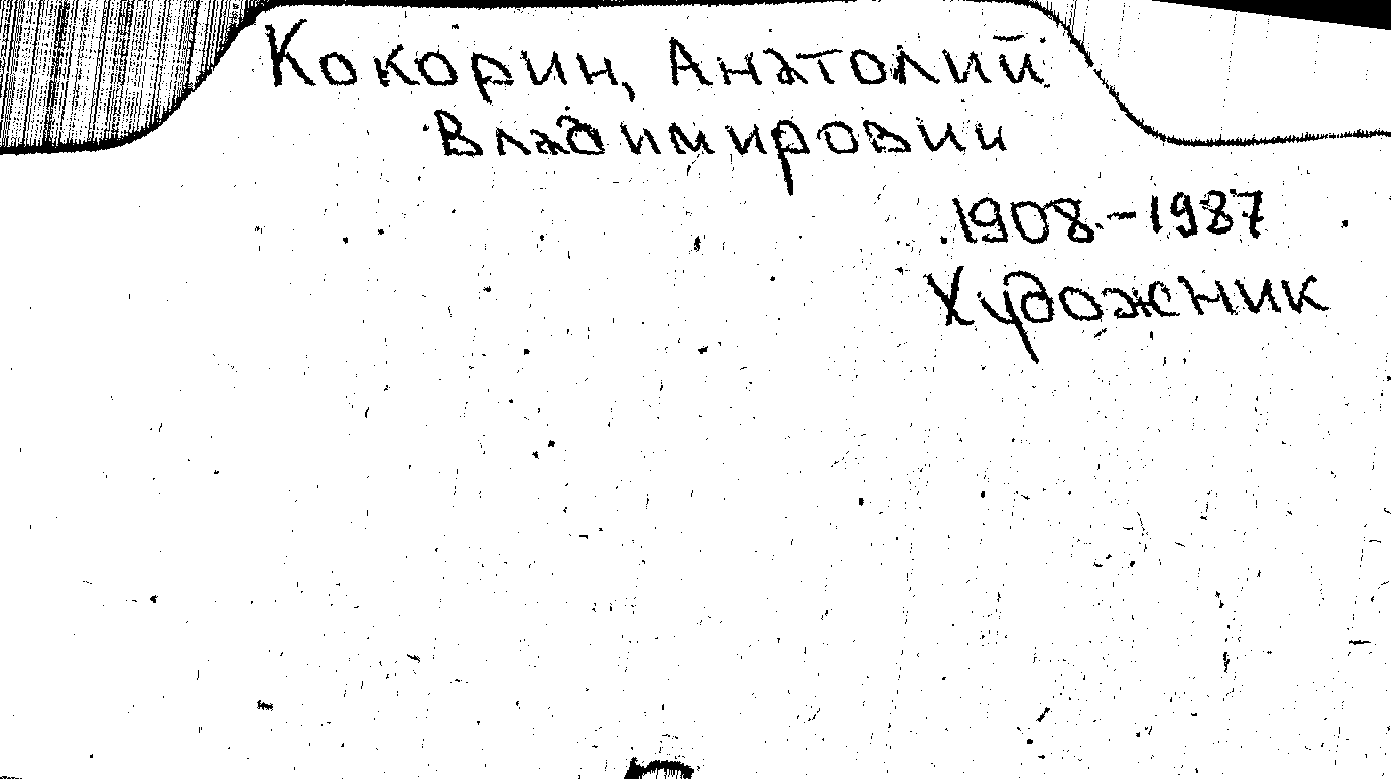 Кокорин, Анатолий
Владимирович
1908-1987
Художник